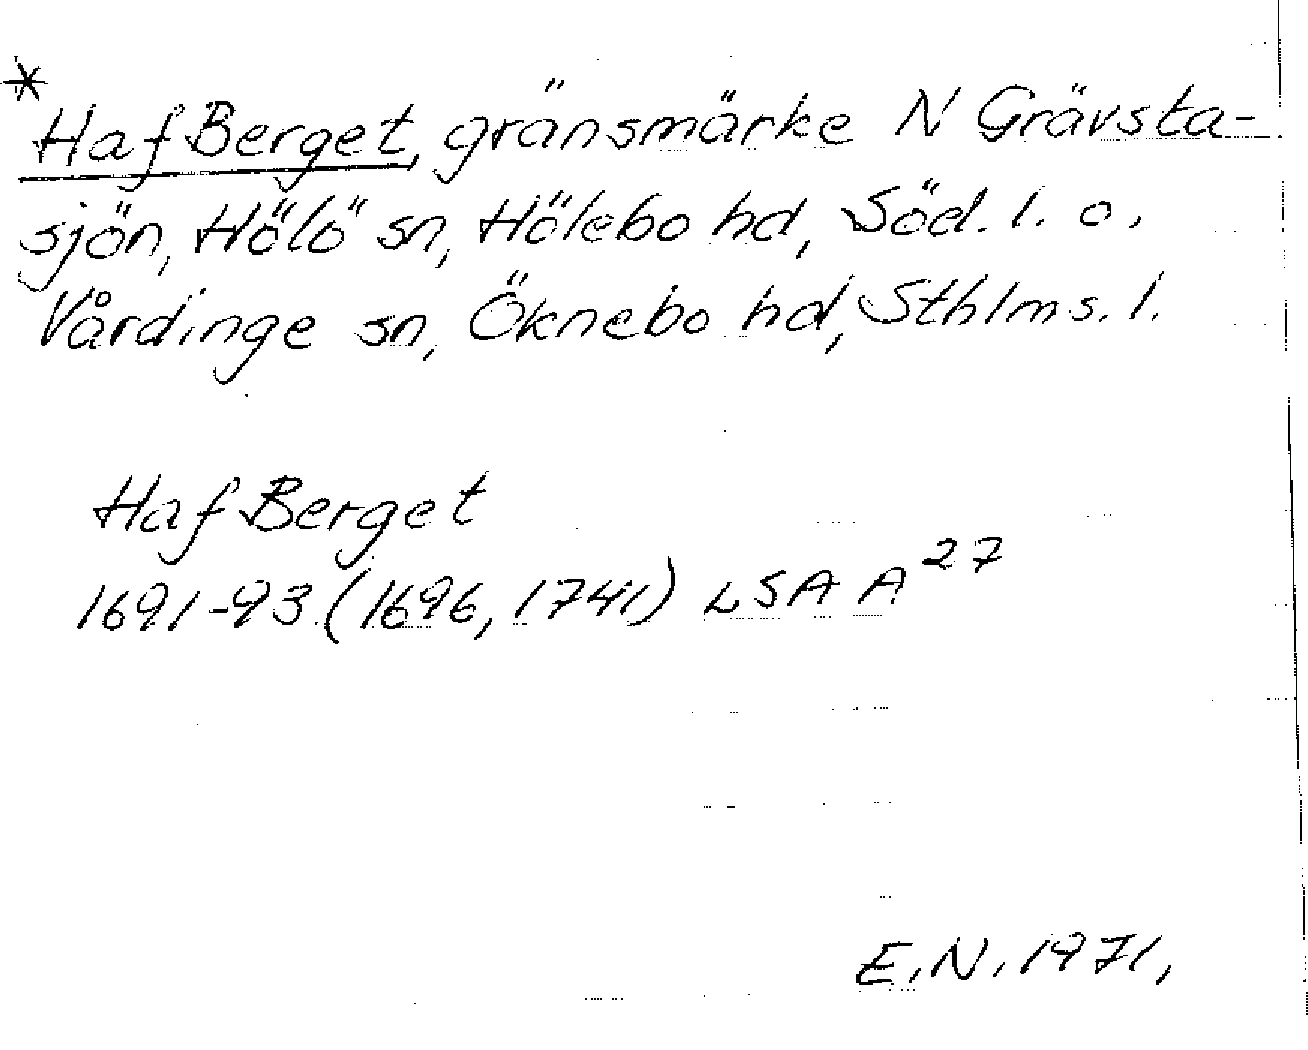 * Haf Berget, gränsmärke N Grävsta-
sjön, Hölö sn, Hölebo hd, Söd. l. o.
Vårdinge sn, Öknebo hd, Sthlms. l.
Haf Berget
1691-93 (1696, 1741) LSA A 27
E.N. 1971,